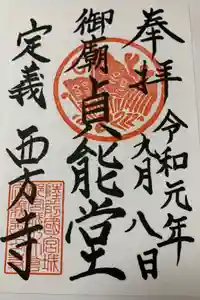 奉拝
令和元年
九月八日
御廟
貞能堂
定義
西方寺